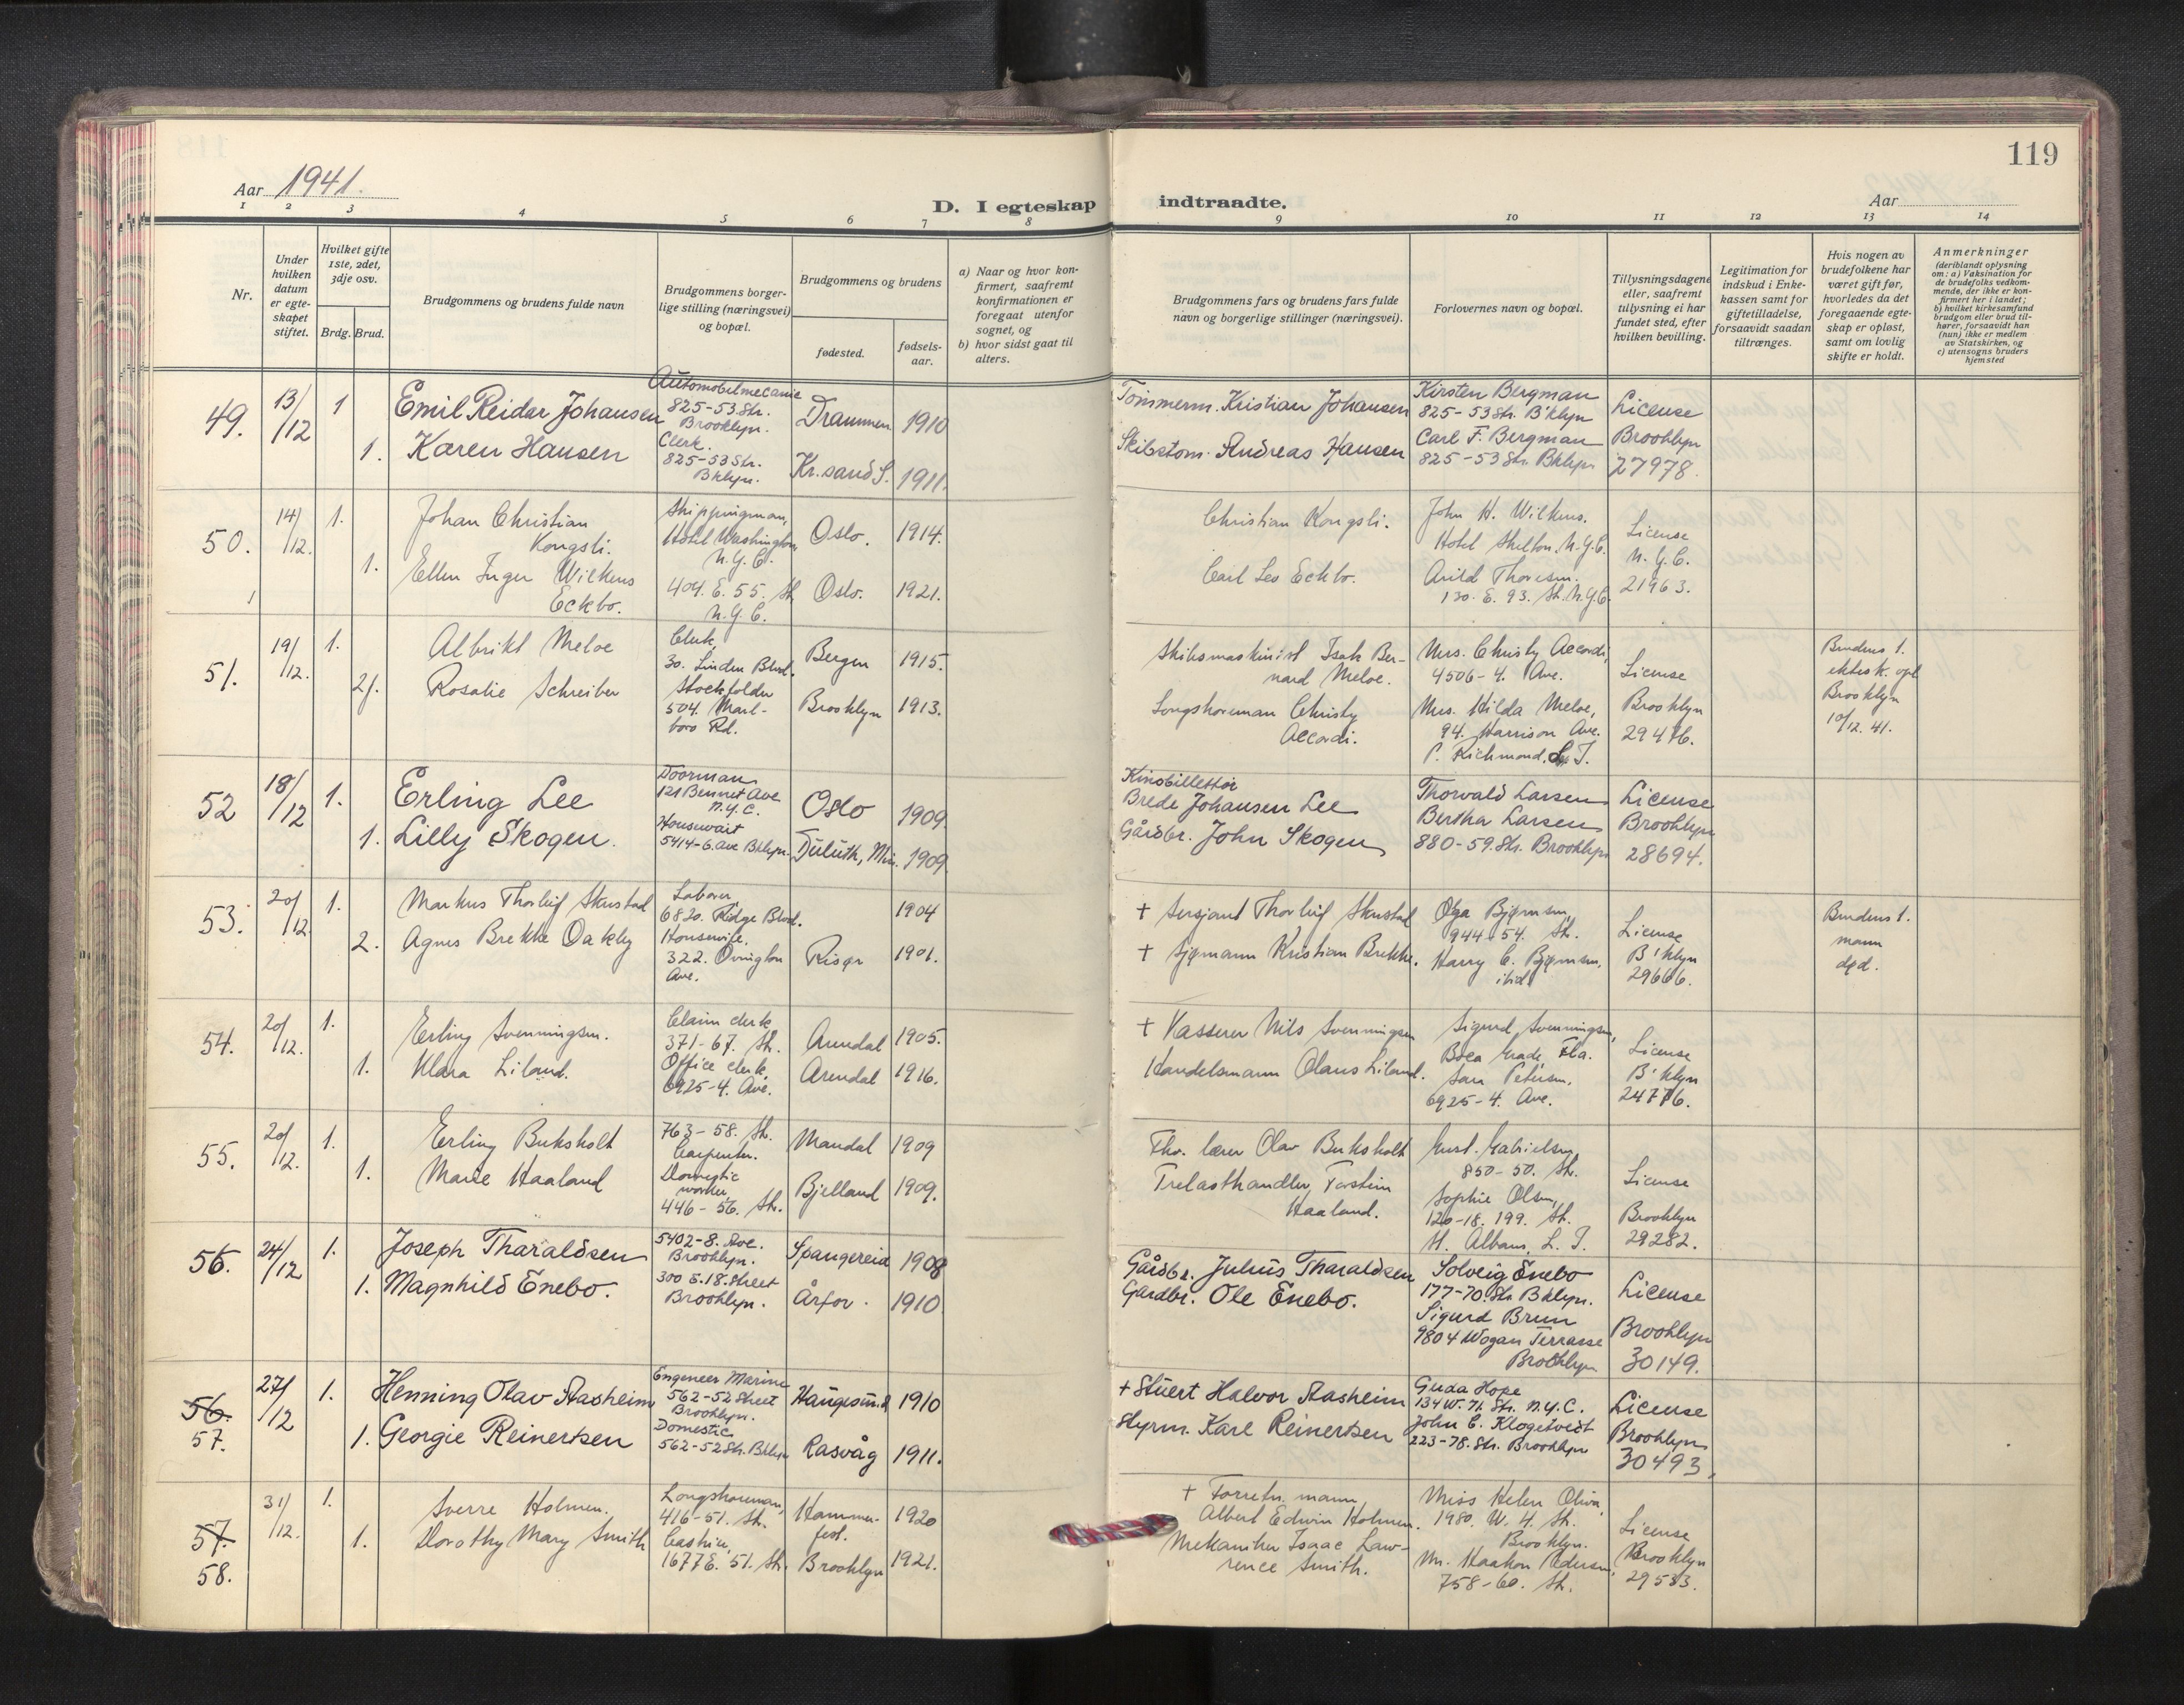 119
Aar 1941.
D. I egteskap indtraadte.
Aar
1 2 3 4 5 6 7 8 9 10 11 12 13 14
Nr.
Under hvilken datum er egteskapet stiftet.
Hvilket gifte 1ste, 2det, 3dje osv.
Brdg. Brud.
Brudgommens og brudens fulde navn
Brudgommens borgerlige stilling (næringsvei) og bopæl.
Brudgommens og brudens
fødested.
fødselsaar.
a) Naar og hvor konfirmert, saafremt konfirmationen er foregaat utenfor sognet, og
b) hvor sidst gaat til alters.
Brudgommens fars og brudens fars fulde navn og borgerlige stillinger (næringsvei).
Forlovernes navn og bopæl.
Tillysningsdagene eller, saafremt tillysning ei har fundet sted, efter hvilken bevilling.
Legitimation for indskud i Enkekassen samt for giftetilladelse, forsaavidt saadan tiltrænges.
Hvis nogen av brudefolkene har været gift før, hvorledes da det foregaaende egteskap er opløst, samt om lovlig skifte er holdt.
Anmerkninger
(deriblandt oplysning om: a) Vaksination for de brudefolks vedkommende, der ikke er konfirmert her i landet; b) hvilket kirkesamfund brudgom eller brud tilhører, forsaavidt han (hun) ikke er medlem av Statskirken, og c) utensogns bruders hjemsted
49. 13/12 1 Emil Reidar Johansen
Automobilmecanic
825-53 Str.
Brooklyn.
Drammen 1910
Tømmerm. Kristian Johansen
Kirsten Bergman
825-53 Str. B'klyn
License
Brooklyn
27978.
1. Karen Hansen
Clerk.
825-53 Str.
Bklyn.
Kr.sand S. 1911.
Skibstøm. Andreas Hansen
Carl F. Bergman
825-53 Str. Bklyn
50. 14/12. 1. Johan Christian
Kongsli.
Shippingman,
Hotel Washington
N.Y.C.
Oslo. 1914.
Christian Kongsli.
John H. Wilkens.
Hotel Shelton. N.Y.C.
License
N.Y.C.
21963.
1. Ellen Inger Wilkens
Eckbo.
404. E. 55. St.
N.Y.C.
Oslo. 1921.
Carl Leo Eckbo.
Arild Thoresen.
130. E. 93. St. N.Y.C.
51. 19/12. 1. Albrikt Meloe
Clerk,
30. Linden Blvd.
Bergen 1915.
Skibsmaskinist Isak Bernard Meloe.
Mrs. Christy Accordi,
4506-4. Ave.
License
Brooklyn
29476.
Brudens 1.
ektesk. opl.
Brooklyn
10/12. 41.
2f. Rosalie Schreiber
Stockfolder
504. Marlboro Rd.
Brooklyn 1913.
Longshoreman Christy
Accordi.
Mrs. Hilda Meloe,
94. Harrison Ave.
P. Richmond, S.I.
52 18/12 1. Erling Lee
Doorman
121 Bennet Ave
N.Y.C.
Oslo 1909.
Kinobillettør
Brede Johansen Lee
Thorvald Larsen
Bertha Larsen
880-59. Str. Brooklyn
License
Brooklyn
28694.
1. Lilly Skogen.
Housewait
5414-6. Ave Bklyn.
Duluth, Min. 1909.
Gårdbr. John Skogen
53. 20/12 1. Markus Thorleif Skustad
Laborer,
6820. Ridge Blvd.
1904
+ Sersjant Thorleif Skustad
Olga Bjørnsen,
944-54. St.
License
B'klyn
29666.
Brudens 1.
mann
død.
2. Agnes Brekke Oakley
Housewife.
322. Ovington
Ave.
Risør 1901.
+ Sjømann Kristian Brekke.
Harry C. Bjørnsen,
ibid.
54. 20/12. 1. Erling Svenningsen.
Claim clerk
371-67. St.
Arendal 1905.
+ Kasserer Nils Svenningsen
Sigurd Svenningsen,
Boca Grade, Fla.
License
B'klyn
24776.
1. Klara Liland.
Office clerk,
6925-4. Ave.
Arendal 1916.
Handelsmann Olaus Liland.
Sara Petersen.
6925-4. Ave.
55. 20/12. 1. Erling Buksholt
763-58. St.
Carpenter.
Mandal 1909
Fhv. lærer Olav Buksholt
Gust. Gabrielsen,
850-50. St.
License
Brooklyn
29282.
1. Marie Haaland
Domestic
worker,
446-56. St.
Bjelland 1909.
Trelasthandler Torstein
Haaland.
Sophie Olsen,
120-18. 199. St.
St. Albans, L.I.
56. 24/12 1. Joseph Tharaldsen
5402-8. Ave.
Brooklyn.
Spangereid 1908
Gårdbr. Julius Tharaldsen
Solveig Enebo
177-70. Str. Bklyn.
License
Brooklyn
30149.
1. Magnhild Enebo.
300 E. 18. Street
Brooklyn.
Årfor. 1910
Gårdbr. Ole Enebo.
Sigurd Brun
9804 Wogan Terrasse
Brooklyn
56. 57. 27/12 1. Henning Olav Aasheim
Engeneer Marine
562-52 Street
Brooklyn.
Haugesund 1910
+ Stuert Halvor Aasheim
Guda Hope
134 W. 71. Str. N.Y.C.
License
Brooklyn
30493.
1. Georgie Reinertsen
Domestic
562-52 Str. Bklyn
Rasvåg 1911.
Styrm. Karl Reinertsen
John C. Klogetvedt
223-78. Str. Brooklyn
57. 58. 31/12. 1. Sverre Holmen.
Longshoreman,
416-51. St.
Hammerfest. 1920
+ Forretn. mann
Albert Edwin Holmen.
Miss Helen Oliva,
1980. W. 4. St.
Brooklyn.
License
Brooklyn
29533.
1. Dorothy Mary Smith
Cashier,
1677 E. 51. St.
Brooklyn 1921.
Mekaniker Isaac Lawrence Smith.
Mr. Haakon Pedersen,
758-60. St.